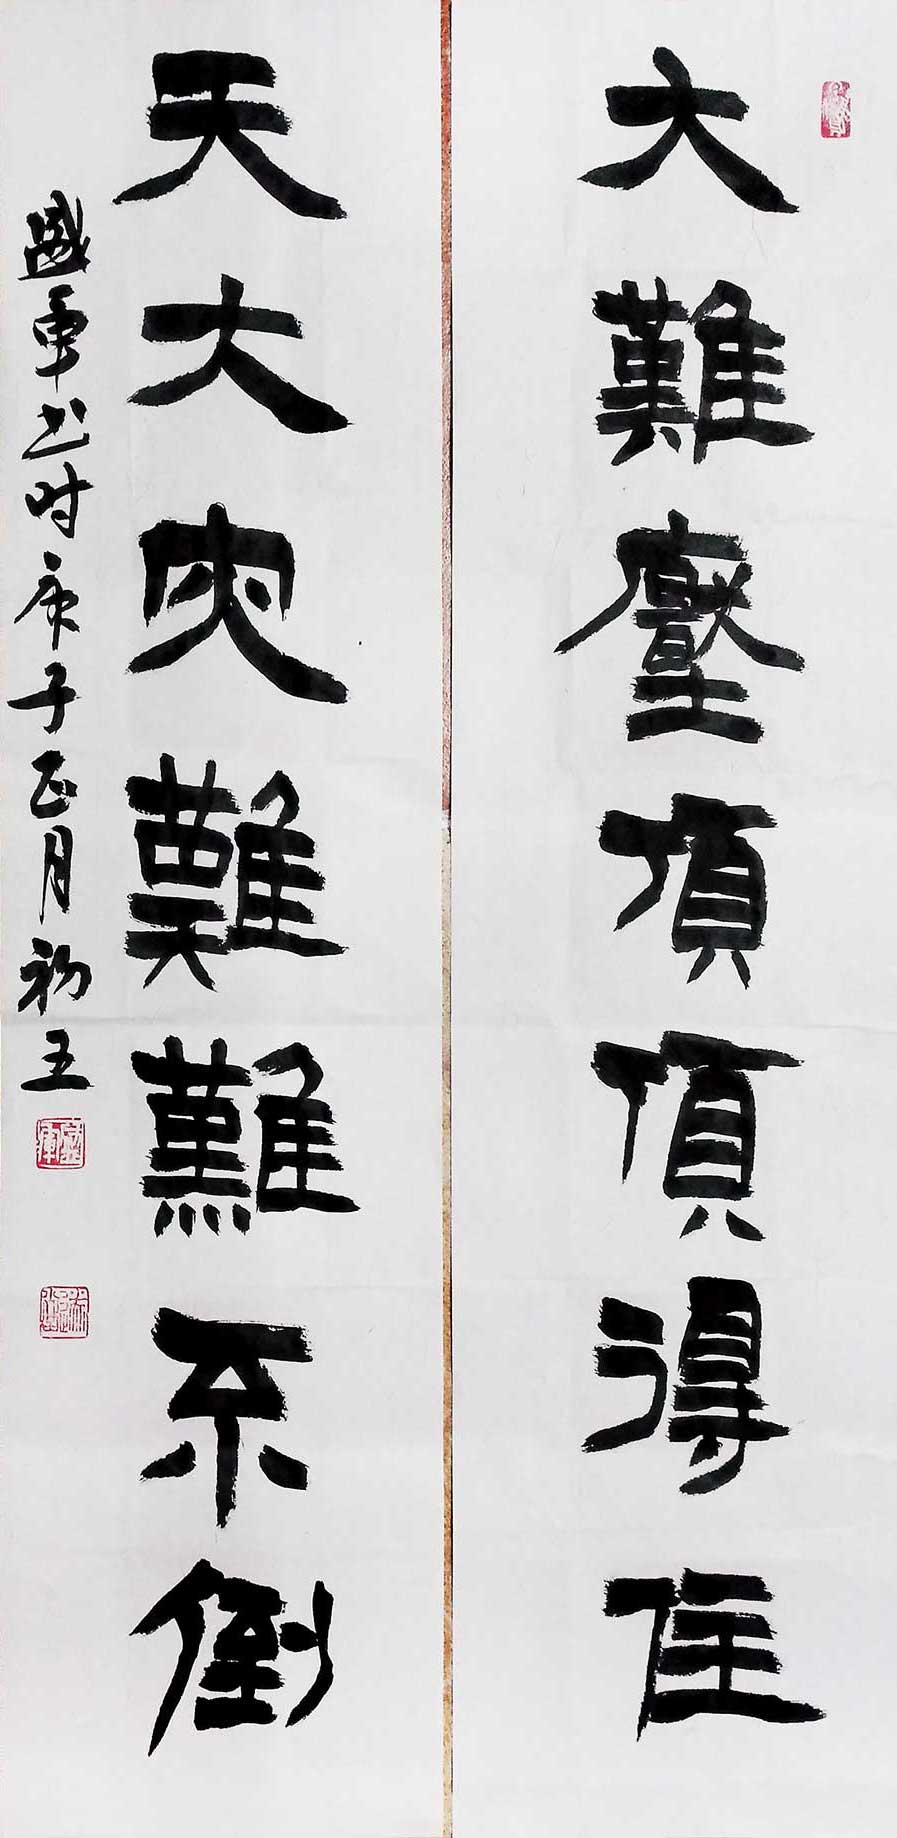 大難壓頂頂得住
天大灾難難不倒
盛軍书时庚子正月初五